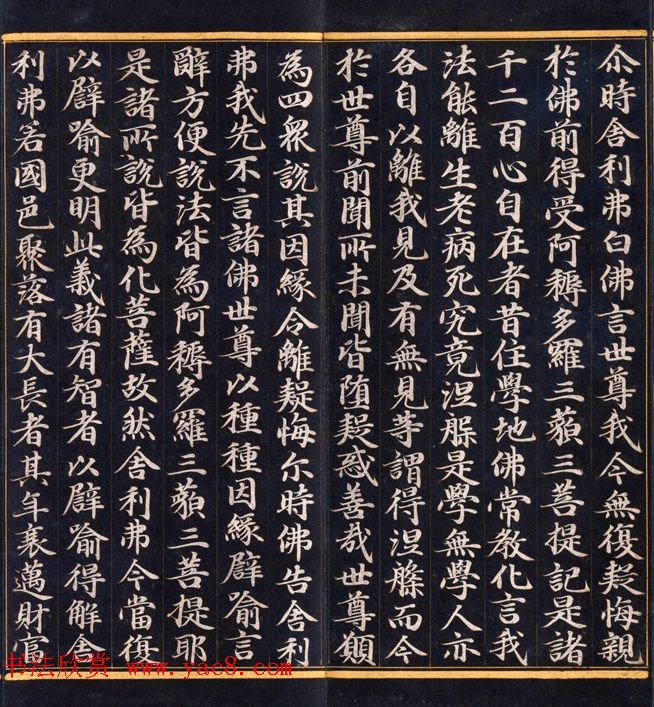 尒時舍利弗白佛言世尊我今無復疑悔親
於佛前得受阿耨多羅三藐三菩提記是諸
千二百心自在者昔住學地佛常教化言我
法能離生老病死究竟涅槃是學無學人亦
各自以離我見及有無見等謂得涅槃而今
於世尊前聞所未聞皆堕疑惑善哉世尊願
為四眾說其因緣令離疑悔尒時佛告舍利
弗我先不言諸佛世尊以種種因緣譬喻言
辭方便說法皆為阿耨多羅三藐三菩提耶
是諸所說皆為化菩薩故然舍利弗今當復
以譬喻更明此義諸有智者以譬喻得解舍
利弗若國邑聚落有大長者其年衰邁財富
书法欣赏 www.yac8.com